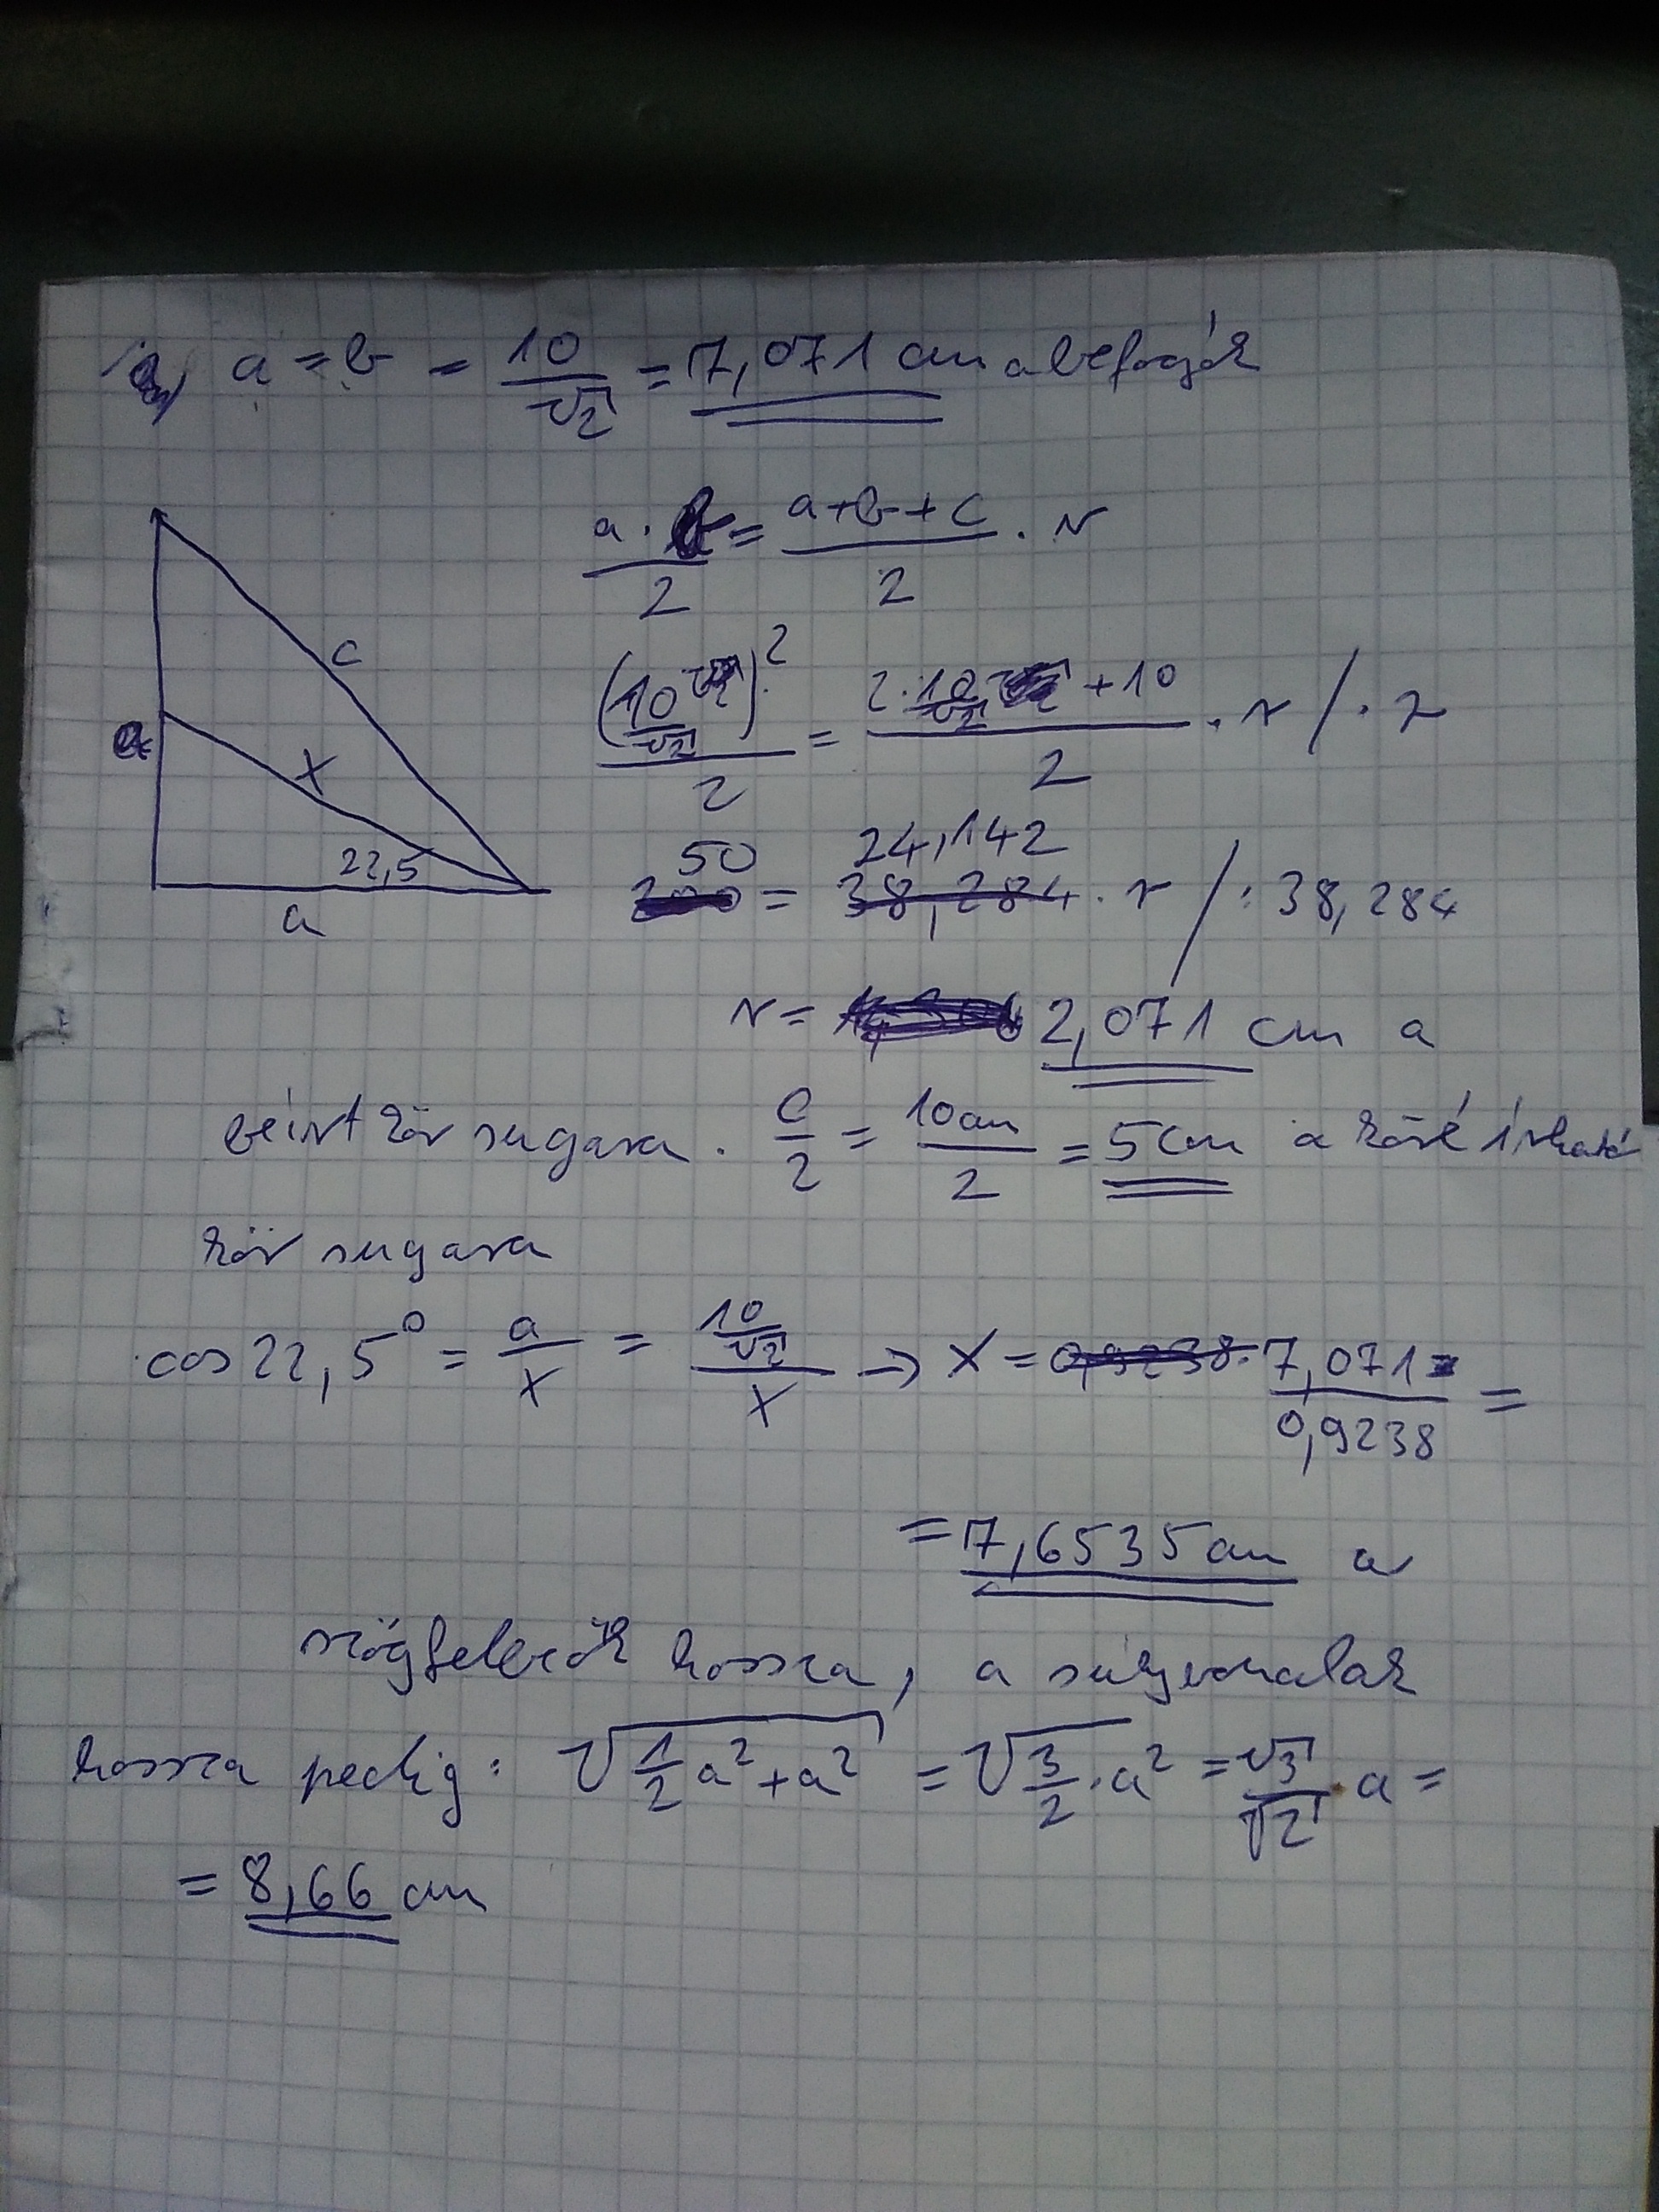 a = b = 10/√2 = 7,071 cm a befogók
a · b/2 = a+b+c/2 · r
(10/√2)²/2 = 2·10/√2 + 10/2 · r / · 2
50 = 24,142 · r / : 38,284
c
a
x
22,5
a
r = 2,071 cm a
beírt kör sugara. c/2 = 10cm/2 = 5cm a köré írható
kör sugara
cos 22,5° = a/x = 10/√2/x → x = 7,071/0,9238 =
= 7,6535 cm a
szögfelezők hossza, a súlyvonalak
hossza pedig: √(1/2 a² + a²) = √(3/2 · a²) = √3/√2 · a =
= 8,66 cm